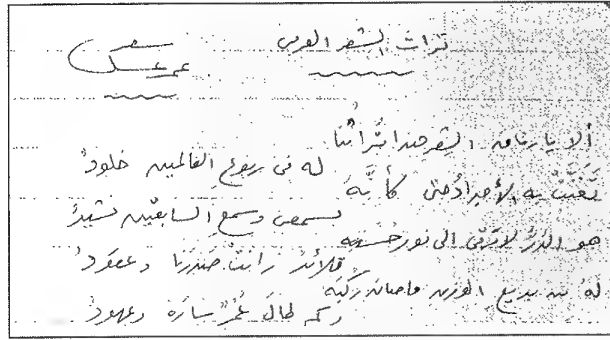 تراث الشعر العربي
شعر
عمر عسل
ألا يا رفاق الشعر هذا تُراثُنا
له في ربوع العالمين خلودُ
تَغَنَّتْ به الأجدادُ حتى كأنَّهُ
بسمعي وسمع السابقين نشيدُ
هو الدرُّ لا ترقى إلى نور حُسنه
قلائد زانت صدرنا وعقودُ
لهُ من بديع الوزن ما صان ركبَه
وكم طال عُمْرٌ ساره وعهودُ